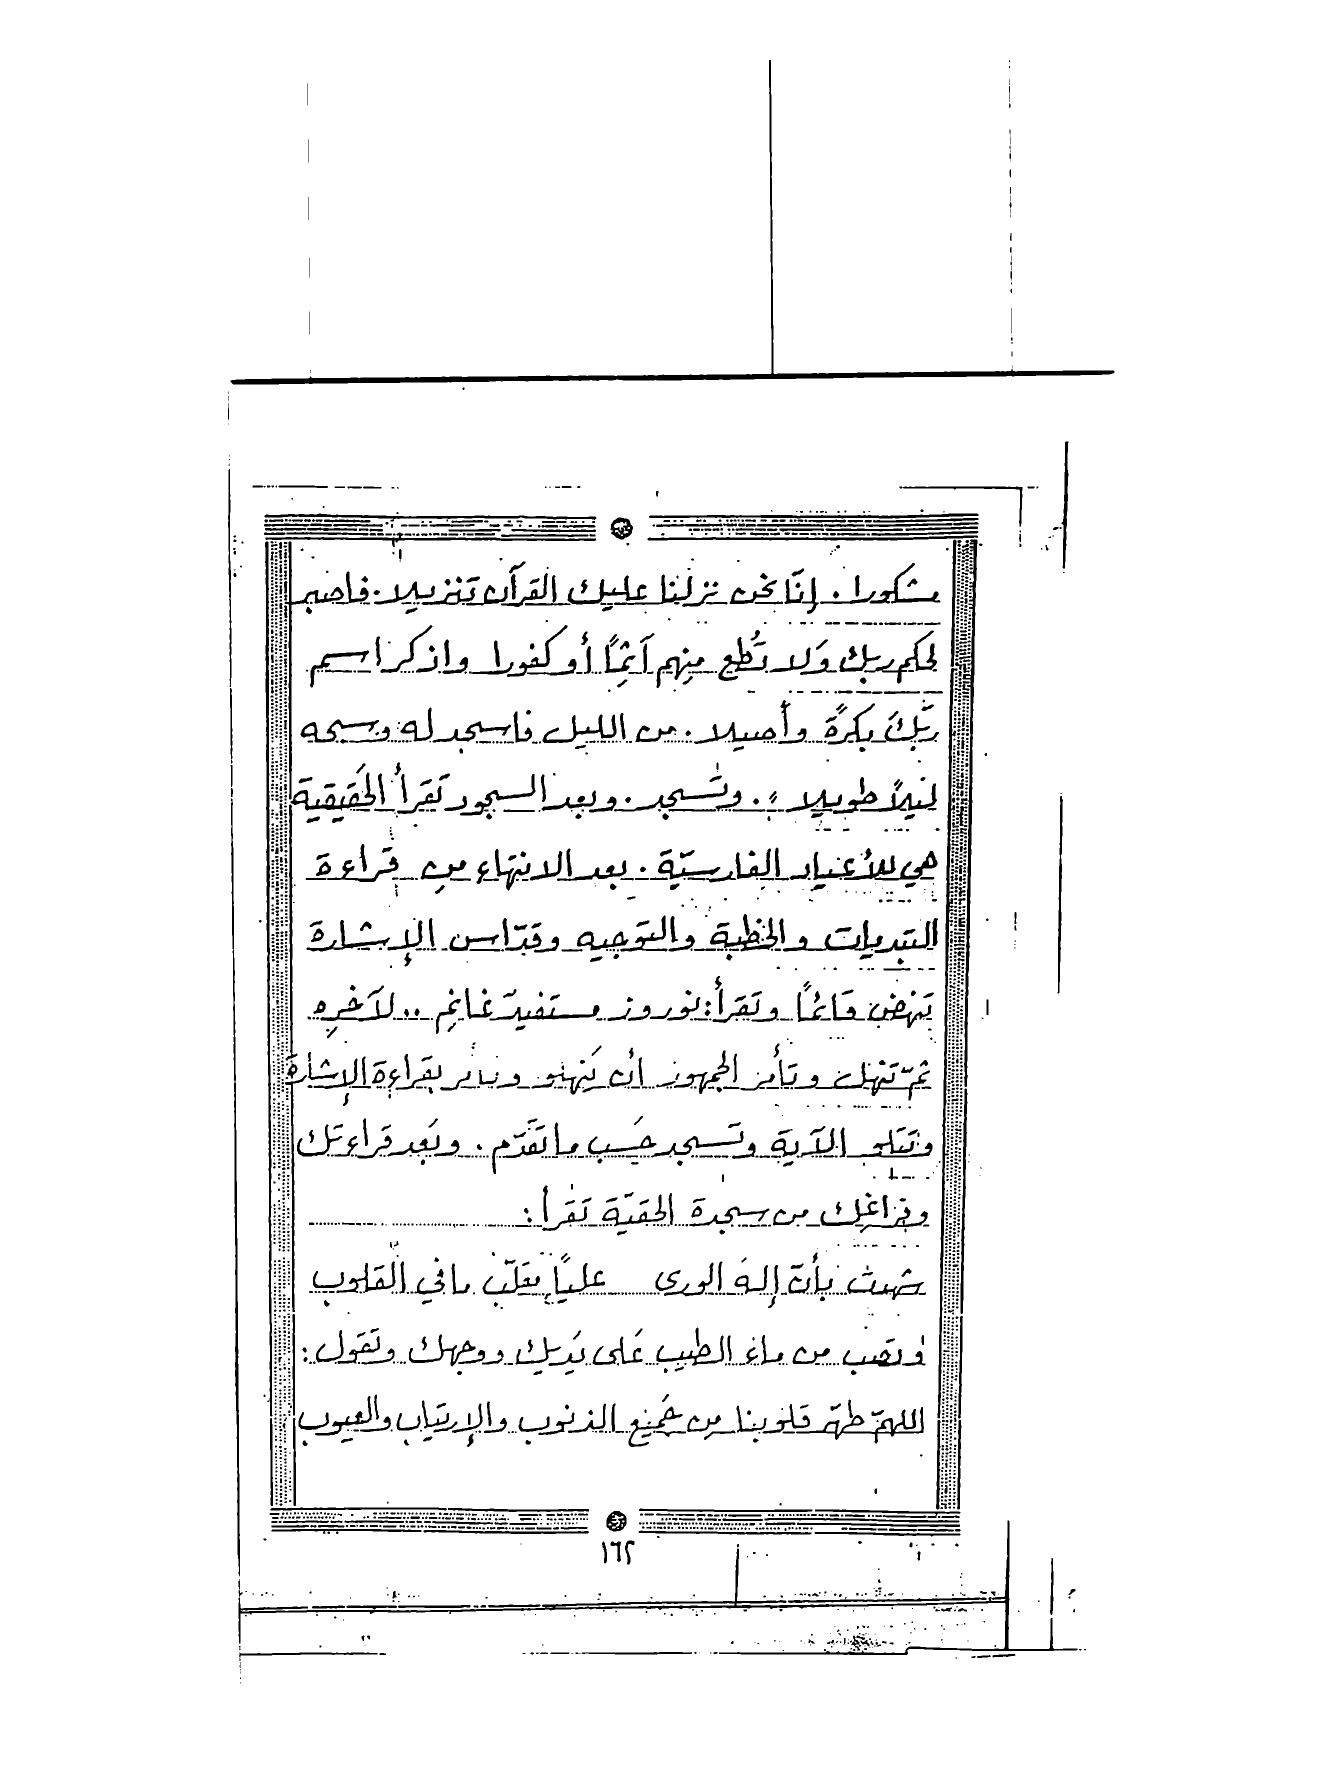 مشكورا . إنّا نحن نزلنا عليك القرآن تنزيلا . فاصبر
لحكم ربك وَلا تُطِع مِنهم آثِمًا أو كفورا واذكر اسم
ربّكَ بكرةً وأصيلا . من الليل فاسجد له وسبحه
ليلاً طويلا » . وتسجد . وبعد السجود تَقرأُ الحَقيقية
هي للأعياد الفارسيّة . بعد الانتهاء من قراءة
التبديات والخطبة والتوجيه وقدّاس الإشارة
تنهض قائمًا وتقرأ : نوروز مستفيدٌ غانِم .. لآخرِه
ثمّ تنهل وتأمر الجمهور أن يَنهلو وتأمر بقراءة الإشارة
وتتلو الآية وتسجد حَسب ما تَقَدّم . وبَعد قراءتك
وفراغِك من سجدة الحقيّة تَقرأ :
شهدت بأنّ إلهَ الورى عليًا مقلّب ما في القلوب
وتصب من ماء الطيب عَلى يَديك ووجهك وتَقول :
اللهمّ طهّر قلوبنا من جَميع الذنوب والإرتياب والعيوب
١٦٢